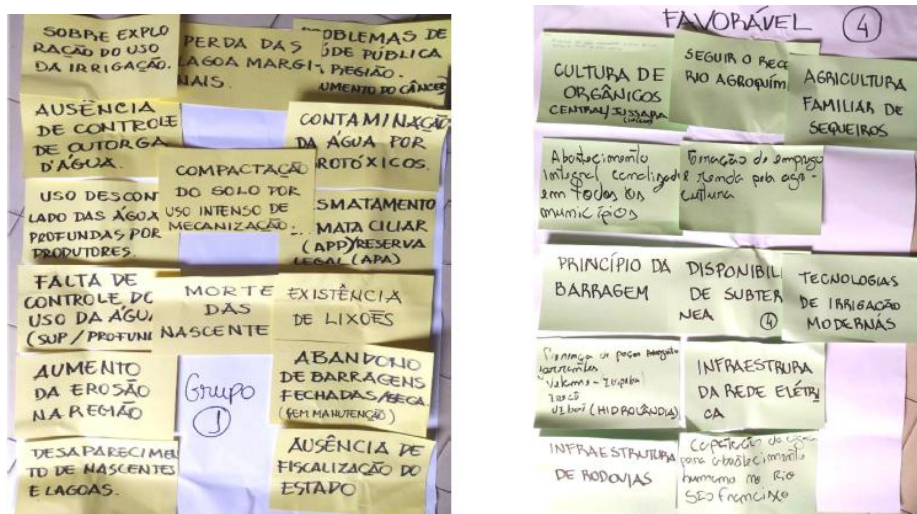 SOBRE EXPLO
RAÇÃO DO USO
DA IRRIGAÇÃO.
PERDA DAS
LAGOA MARGI-
NAIS.
OBLEMAS DE
DE PÚBLICA
REGIÃO.
UMENTO DO CÂNCER
AUSÊNCIA
DE CONTROLE
DE OUTORGA
D'ÁGUA.
CONTAMINAÇÃO
DA ÁGUA POR
ROTÓXICOS.
COMPACTAÇÃO
DO SOLO POR
USO INTENSO DE
MECANIZAÇÃO.
USO DESCON
LADO DAS ÁGUA
PROFUNDAS POR
PRODUTORES.
SMATAMENTO
MATA CILIAR
(APP)/RESERVA
LEGAL (APA)
FALTA DE
CONTROLE DO
USO DA ÁGUA
(SUP / PROFUN
MORTE
DAS
NASCENTE
EXISTÊNCIA
DE LIXÕES
AUMENTO
DA EROSÃO
NA REGIÃO
Grupo
1
ABANDONO
DE BARRAGENS
FECHADAS/SECA.
(SEM MANUTENÇÃO)
DESAPARECIMEN
TO DE NASCENTES
E LAGOAS.
AUSÊNCIA DE
FISCALIZAÇÃO DO
ESTADO
FAVORÁVEL 4
CULTURA DE
ORGÂNICOS
CENTRAL/JUSSARA
SEGUIR O RECE
RIO AGROQUÍM
AGRICULTURA
FAMILIAR DE
SEQUEIROS
Abastecimento
integral canalizado
em todos os
municípios
Formação de emprego
e renda pela agri-
cultura
PRINCÍPIO DA
BARRAGEM
DISPONIBILI
DE SUBTER
NEA 4
TECNOLOGIAS
DE IRRIGAÇÃO
MODERNAS
de poços
Ibipeba
Irecê
Uibaí (HIDROLÂNDIA)
INFRAESTRURA
DA REDE ELÉTRI
CA
INFRAESTRUTURA
DE RODOVIAS
Captação de água
para abastecimento
humano no Rio
São Francisco